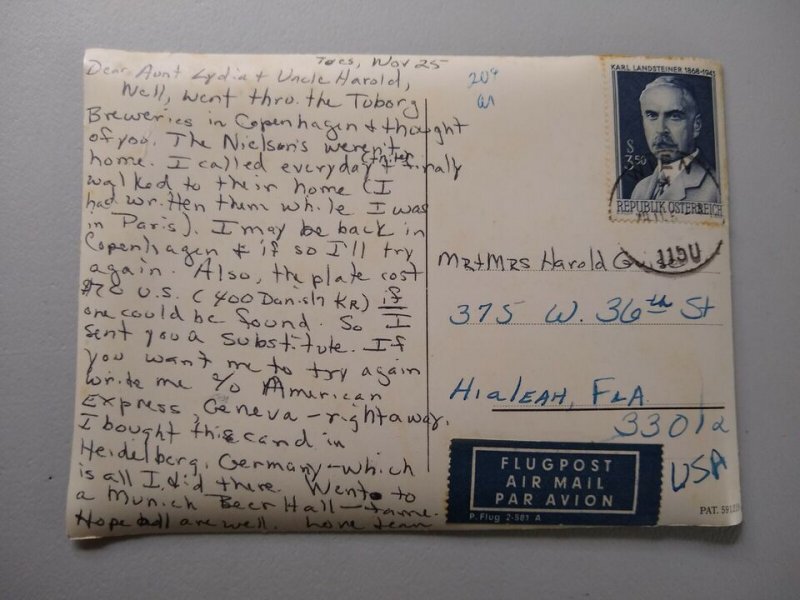 Tues, Nov 25
Dear Aunt Lydia + Uncle Harold,
Well, went thru the Toborg
Breweries in Copenhagen + thought
of you. The Nielson's weren't
home. I called everyday + finally
walked to their home (I
had written them while I was
in Paris). I may be back in
Copenhagen + if so I'll try
again. Also, the plate cost
U.S. (400 Danish KR) if
one could be found. So I
sent you a substitute. If
you want me to try again
write me c/o American
Express, Geneva - right away.
I bought this card in
Heidelberg, Germany - which
is all I did there. Went to
a Munich Beer Hall - tame.
Hope all are well. Love
KARL LANDSTEINER 1868-1941
S
3.50
REPUBLIK ÖSTERREICH
1150
Mr + Mrs Harold
375 W. 36th St
Hialeah, Fla
33012
USA
FLUGPOST
AIR MAIL
PAR AVION
P. Flug 2-581 A
PAT.